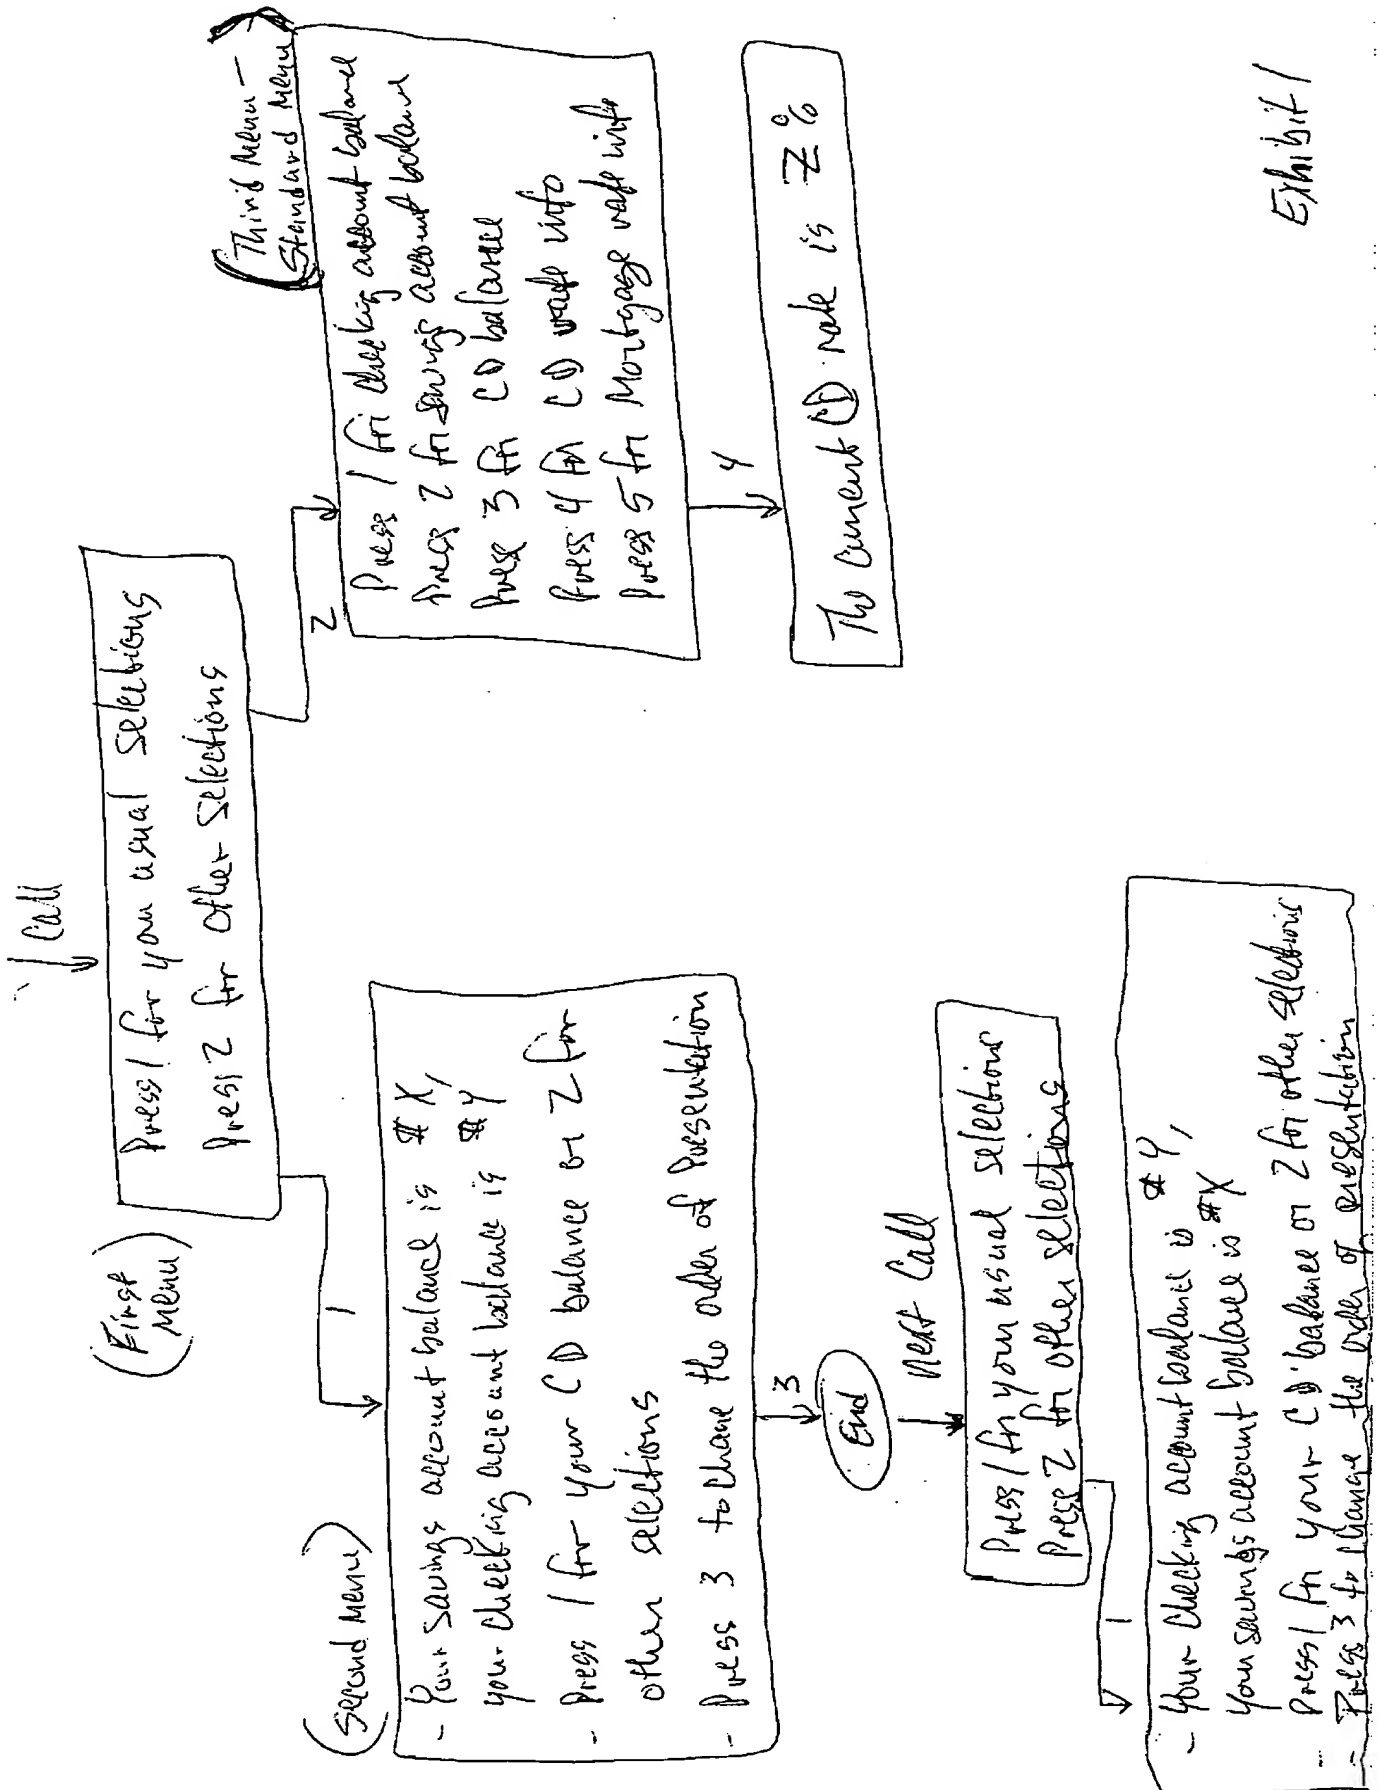 Call
(First
Menu)
Press 1 for your usual selections
Press 2 for other selections
1
2
(Second Menu)
- Your savings account balance is $X,
your checking account balance is $Y
- Press 1 for your CD balance or 2 for
other selections
- Press 3 to chane the order of Presentation
3
End
Next Call
Press 1 for your usual selections
Press 2 for other selections
1
- Your checking account balance is $Y,
your savings account balance is $X
- Press 1 for your CD balance or 2 for other selections
- Press 3 to change the order of presentation
(Third Menu -
Standard Menu)
Press 1 for checking account balance
Press 2 for savings account balance
Press 3 for CD balance
Press 4 for CD rate info
Press 5 for Mortgage rate info
4
The current CD rate is Z%
Exhibit 1